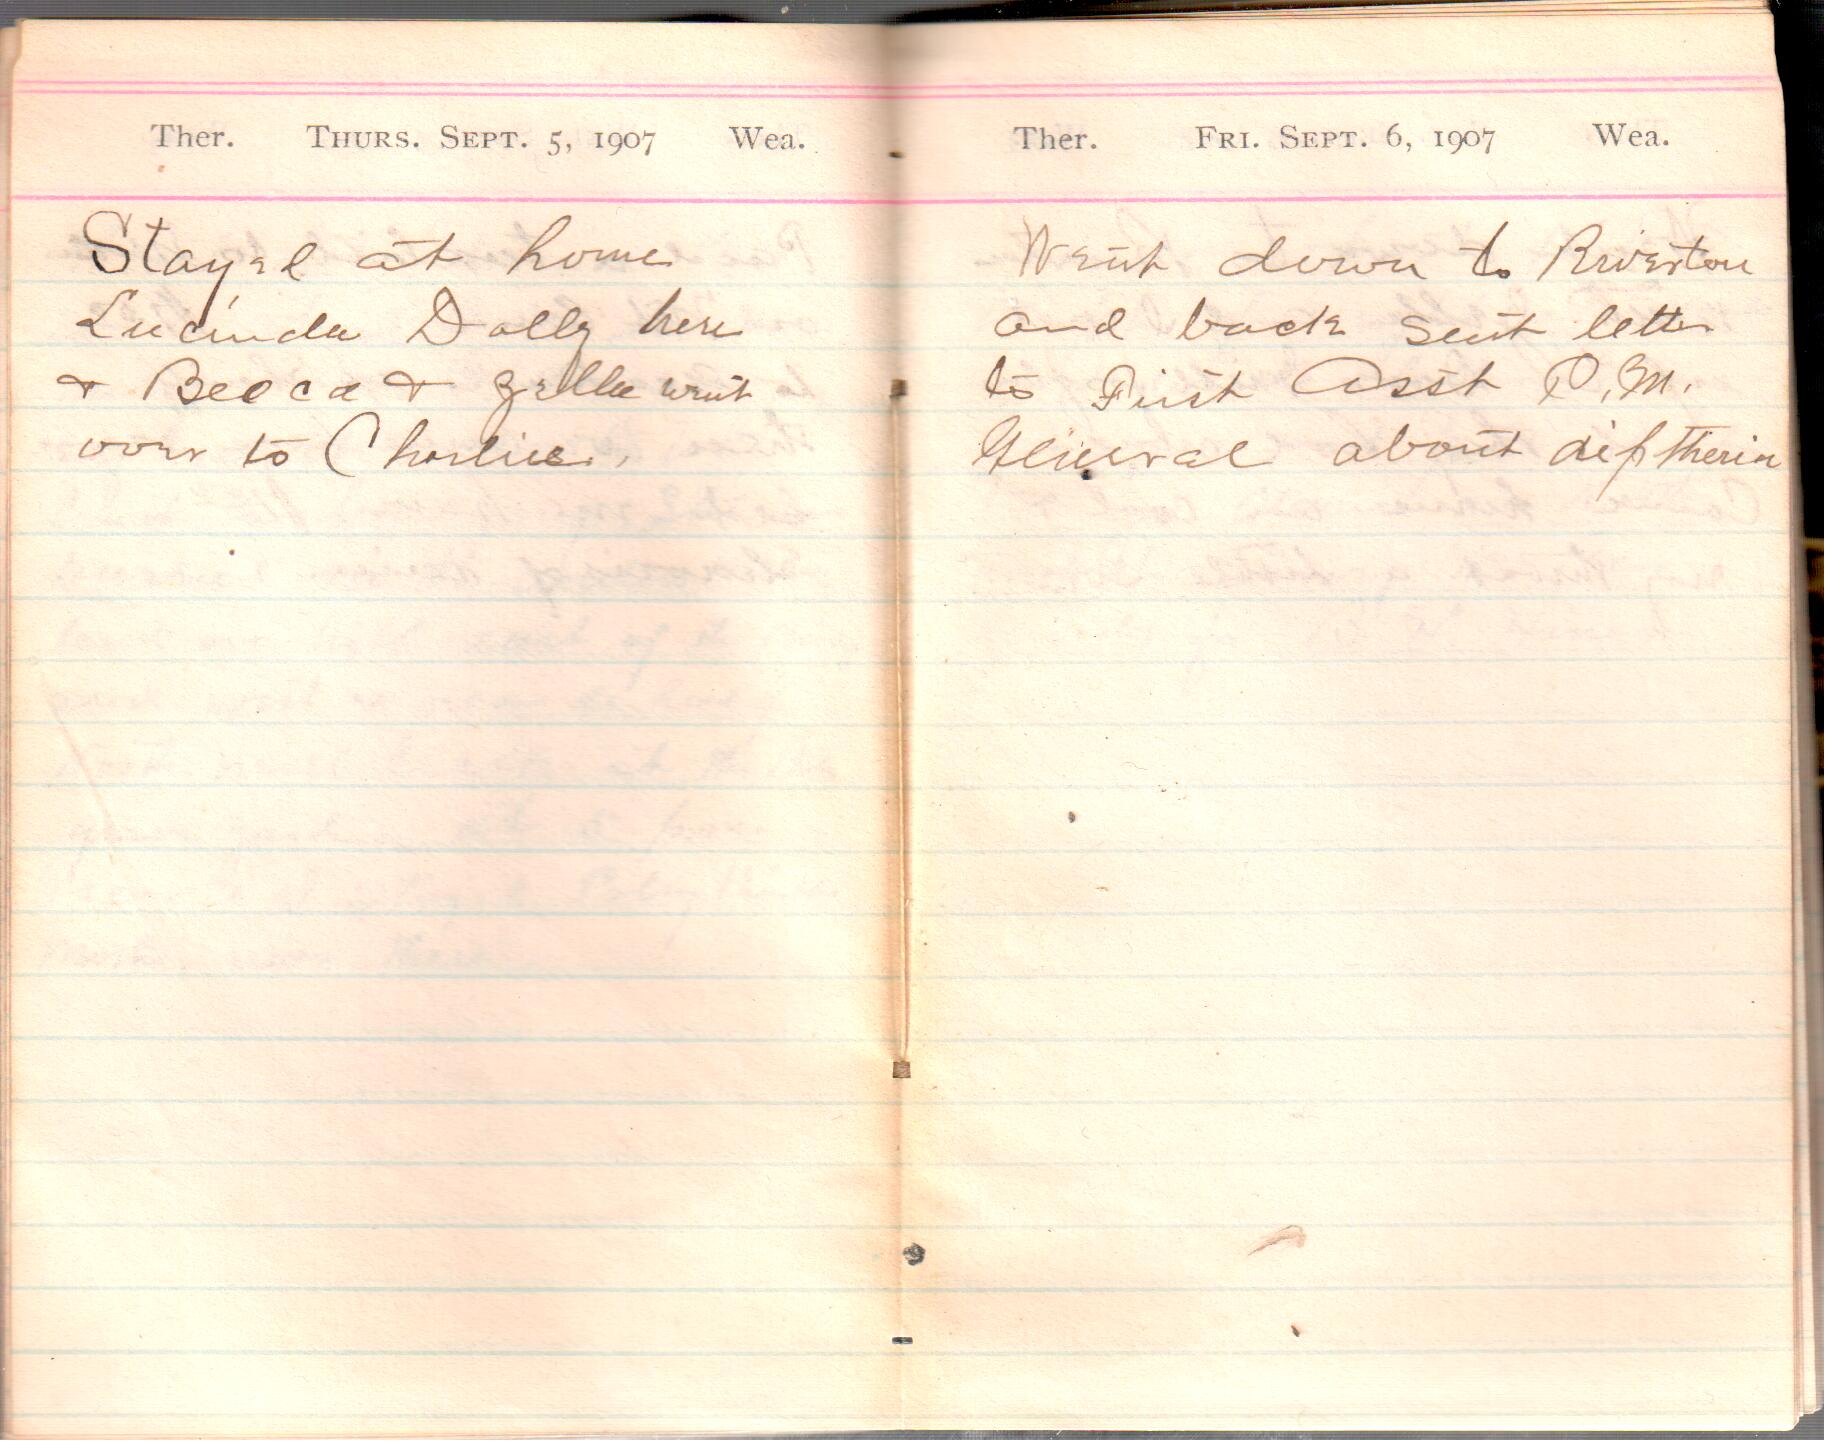 Ther. THURS. SEPT. 5, 1907 Wea.
Stayed at home
Lucinda Dolly here
& Becca & Zella went
over to Charlies.
Ther. FRI. SEPT. 6, 1907 Wea.
Went down to Riverton
and back sent letter
to First Asst P.M.
General about diptheria